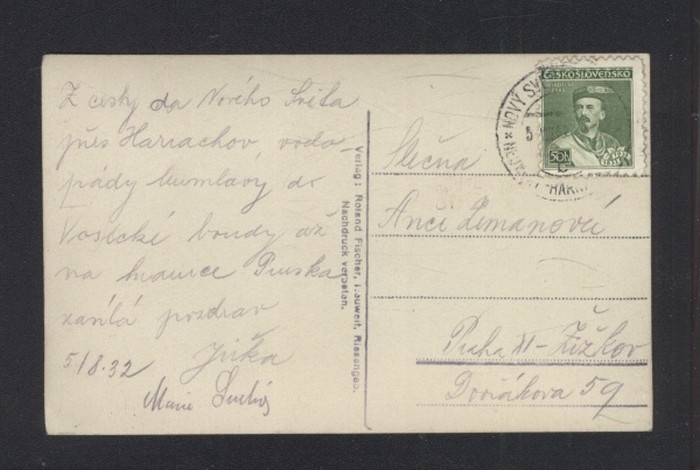 Z cesty do Nového Světa
přes Harrachov, vodo-
pády Mumlavy do
Vosecké boudy až
na hranice Pruska
zasílá pozdrav
Jirka
5/8.32
Marie
Verlag: Roland Fischer, Riesengeb.
Nachdruck verboten.
ČESKOSLOVENSKO
50h
NOVÝ SV
Slečna
Anči Zemanová
Praha XI - Žižkov
Dvořákova 59